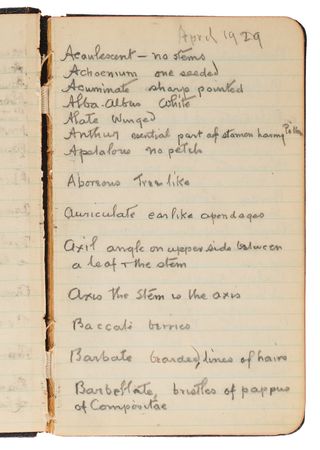 April 1929
Acaulescent – no stems
Achoenium one seeded
Acuminate sharp pointed
Alba-Albus White
Alate Winged
Anther esential part of stamon having Pollen
Apetalous no petels
Aboreous Tree like
auriculate earlike apendages
Axil angle on upper side between
a leaf + the stem
Axis the stem is the axis
Baccate berries
Barbate (Bearded) lines of hairs
Barbellate, bristles of pappus
of Compositae